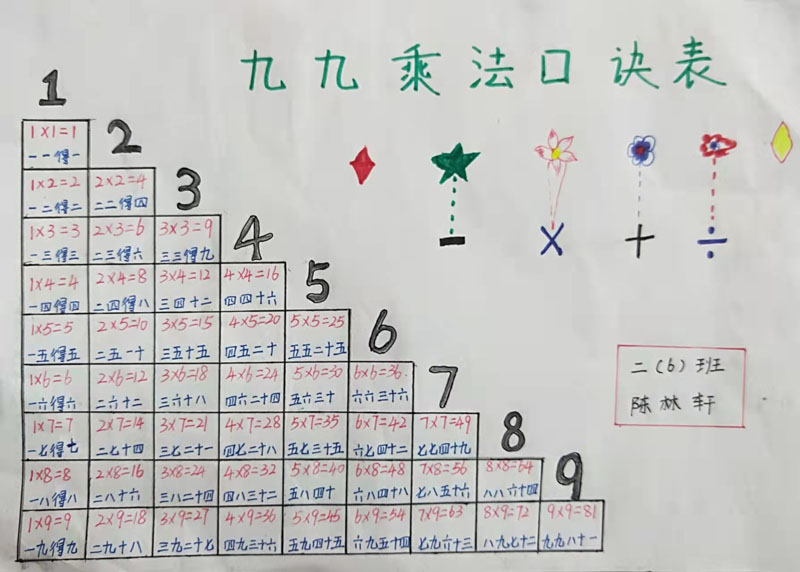 九九乘法口诀表
1
1×1=1
一一得一
2
1×2=2 2×2=4
一二得二 二二得四
3
1×3=3 2×3=6 3×3=9
一三得三 二三得六 三三得九
4
1×4=4 2×4=8 3×4=12 4×4=16
一四得四 二四得八 三四十二 四四十六
5
1×5=5 2×5=10 3×5=15 4×5=20 5×5=25
一五得五 二五一十 三五十五 四五二十 五五二十五
6
1×6=6 2×6=12 3×6=18 4×6=24 5×6=30 6×6=36
一六得六 二六十二 三六十八 四六二十四 五六三十 六六三十六
7
1×7=7 2×7=14 3×7=21 4×7=28 5×7=35 6×7=42 7×7=49
一七得七 二七十四 三七二十一 四七二十八 五七三十五 六七四十二 七七四十九
8
1×8=8 2×8=16 3×8=24 4×8=32 5×8=40 6×8=48 7×8=56 8×8=64
一八得八 二八十六 三八二十四 四八三十二 五八四十 六八四十八 七八五十六 八八六十四
9
1×9=9 2×9=18 3×9=27 4×9=36 5×9=45 6×9=54 7×9=63 8×9=72 9×9=81
一九得九 二九十八 三九二十七 四九三十六 五九四十五 六九五十四 七九六十三 八九七十二 九九八十一
− × + ÷
二(6)班
陈林轩